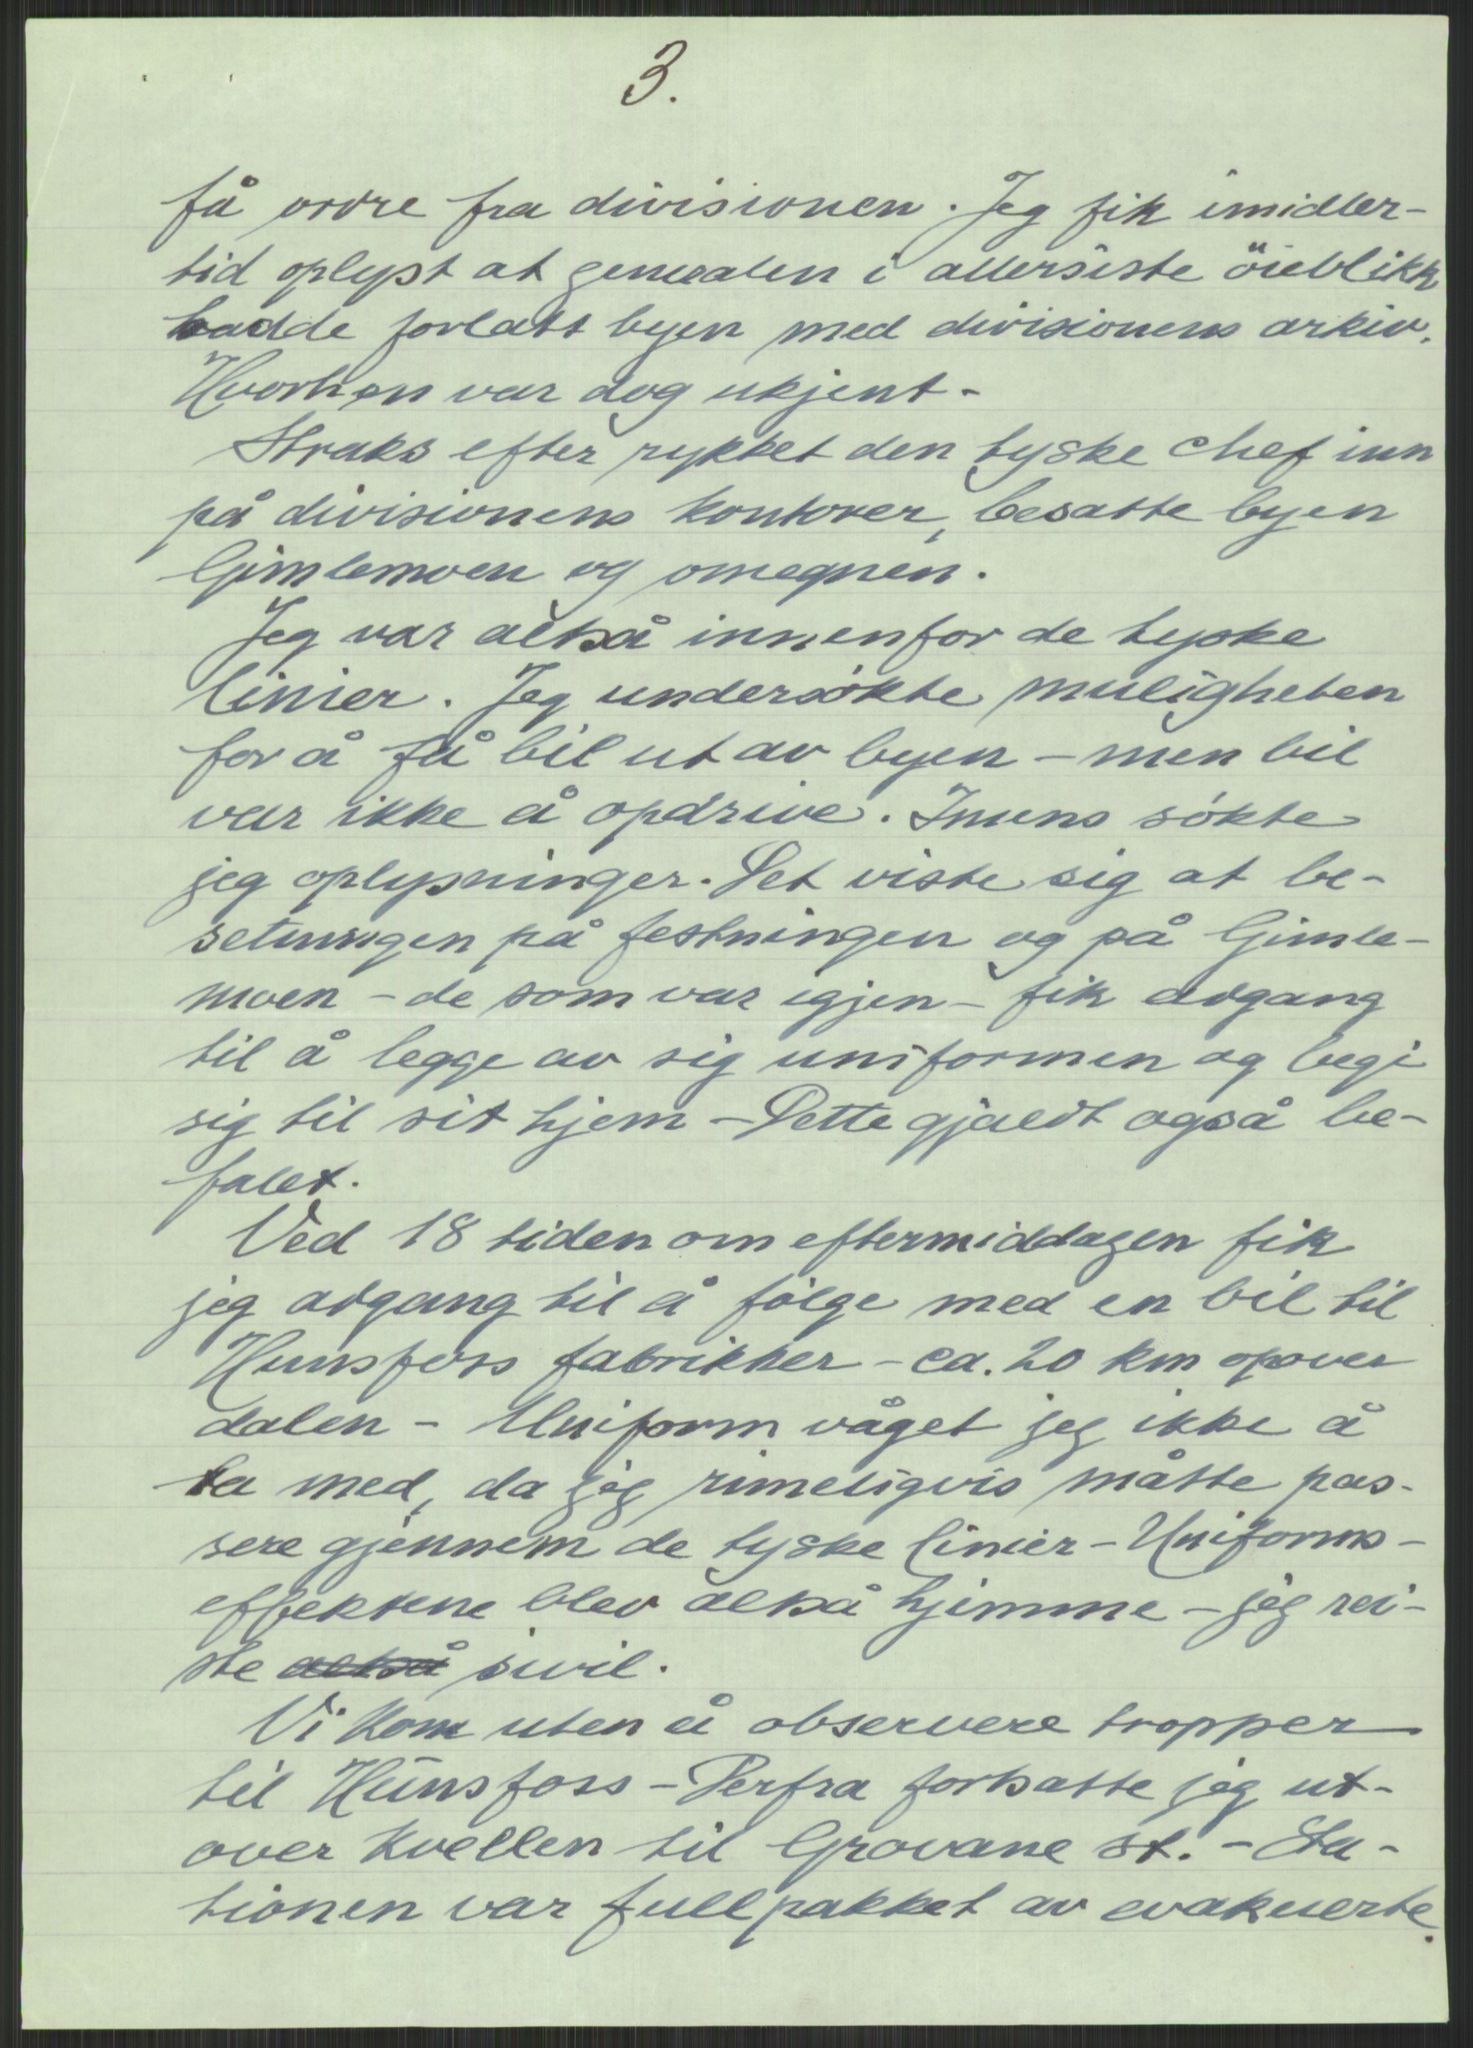 3.
få ordre fra divisionen. Jeg fik imidler-
tid oplyst at generalen i allersiste öieblikk
hadde forlatt byen med divisionens arkiv.
Hvorhen var dog ukjent -
Straks efter rykket den tyske chef inn
på divisionens kontorer, besatte byen
Gimlemoen og omegnen.
Jeg var altså innenfor de tyske
linier. Jeg undersökte muligheten
for å få bil ut av byen - men bil
var ikke å opdrive. Imens sökte
jeg oplysninger. Det viste sig at be-
setningen på festningen og på Gimle-
moen - de som var igjen - fik adgang
til å legge av sig uniformen og begi
sig til sit hjem - Dette gjaldt også be-
falet.
Ved 18 tiden om eftermiddagen fik
jeg adgang til å fölge med en bil til
Hunsfoss fabrikker - ca. 20 km opover
dalen - Uniform våget jeg ikke å
ta med, da jeg rimeligvis måtte pas-
sere gjennem de tyske linier - Uniforms-
effektene blev altså hjemme - jeg rei-
ste altså sivil.
Vi kom uten å observere tropper
til Hunsfoss - Derfra fortsatte jeg ut-
over kvellen til Grovane st. - Sta-
tionen var fullpakket av evakuerte.